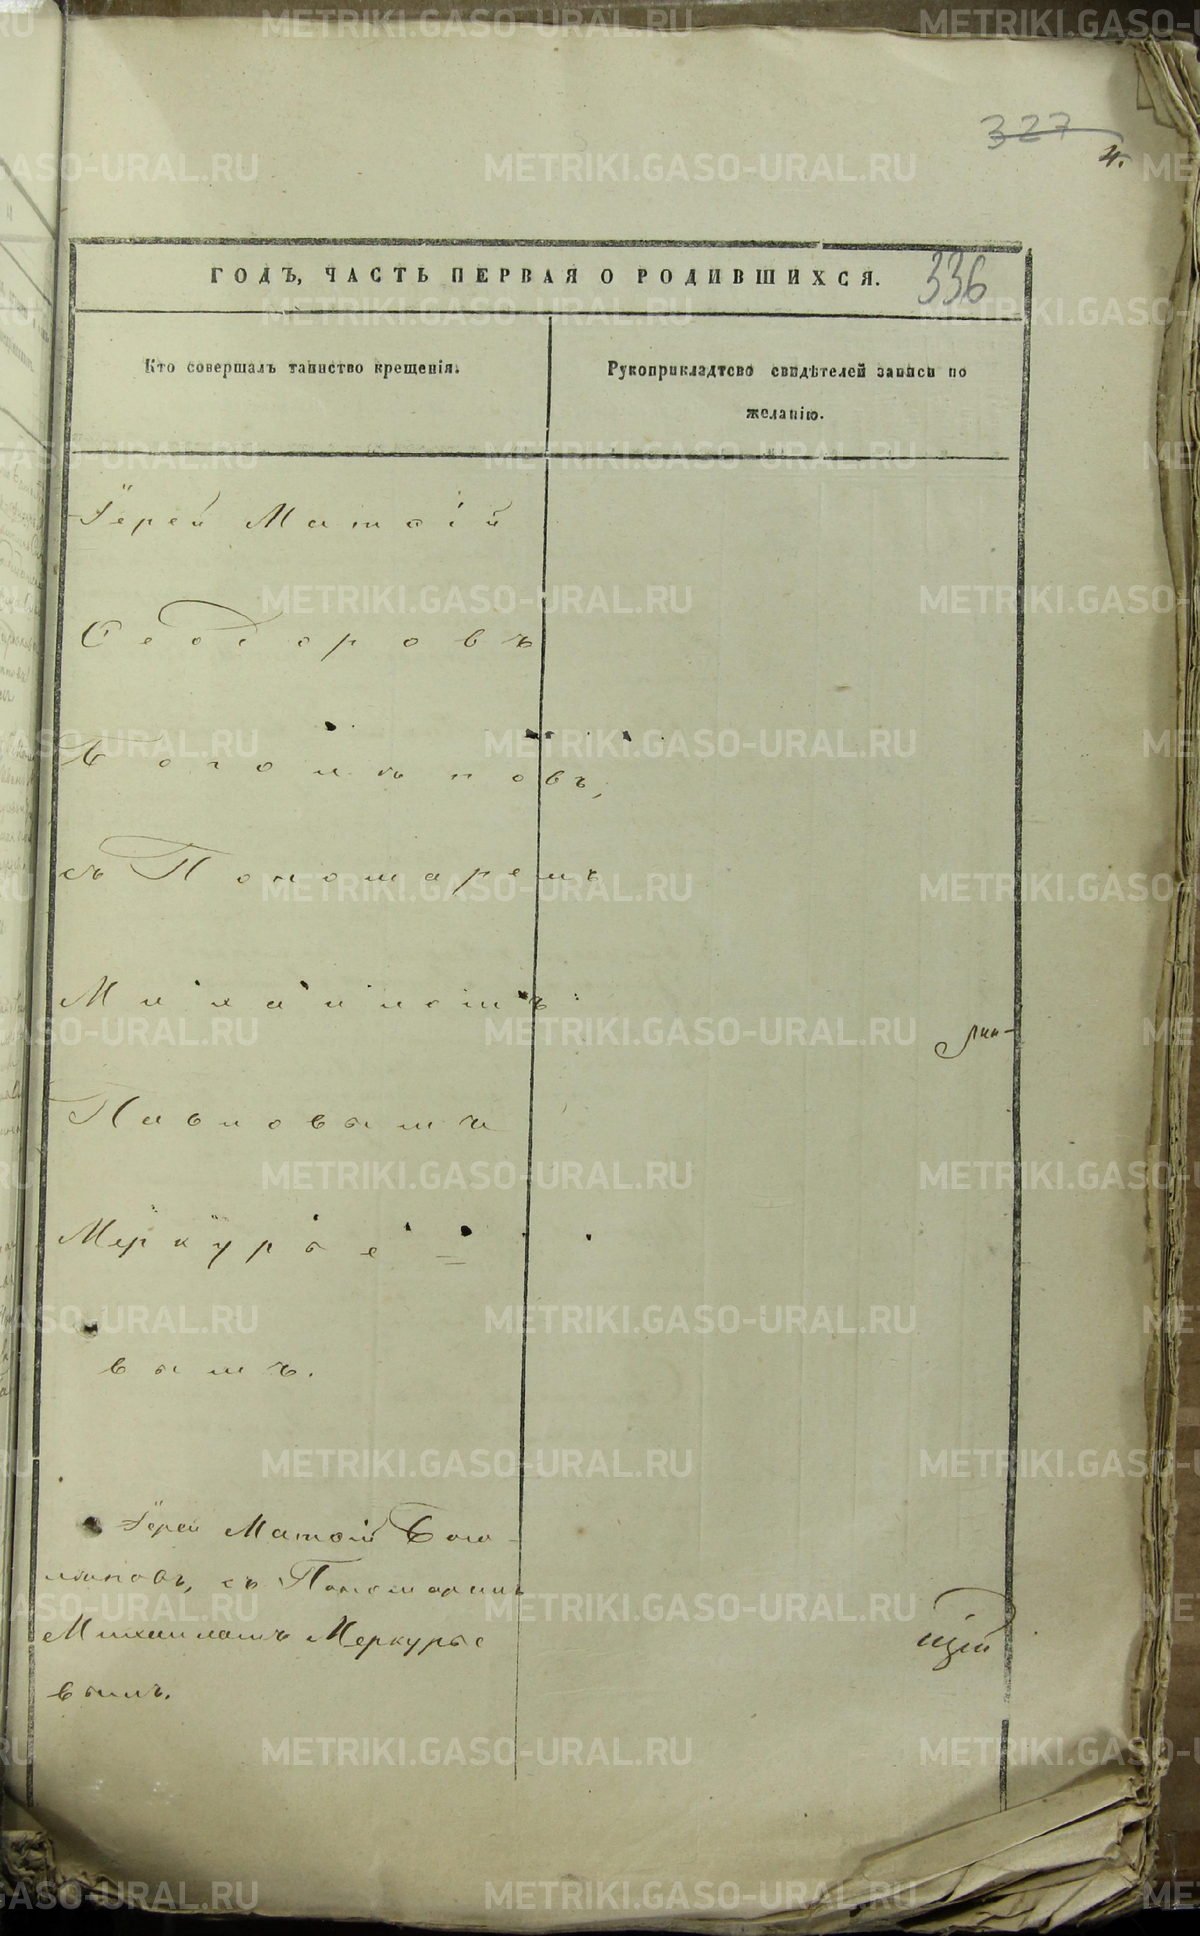 327
4.
336
ГОДЪ, ЧАСТЬ ПЕРВАЯ О РОДИВШИХСЯ.
Кто совершалъ таинство крещенія.
Рукоприкладтсво свидѣтелей записи по
желанію.
Іерей Матѳій
Ѳеодоровъ
Боголѣповъ,
съ Пономаремъ
Михаиломъ
Павловымъ
Меркурье=
вымъ.
Іерей Матѳій Бого-
лѣповъ, съ Пономаремъ
Михаиломъ Меркурье
вымъ.
METRIKI.GASO-URAL.RU